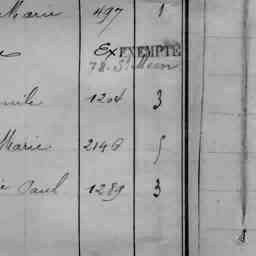 Marie 497 1
Ex EXEMPTÉ
78. St Meen
1204 3
Marie 2146 5
Paul 1289 3